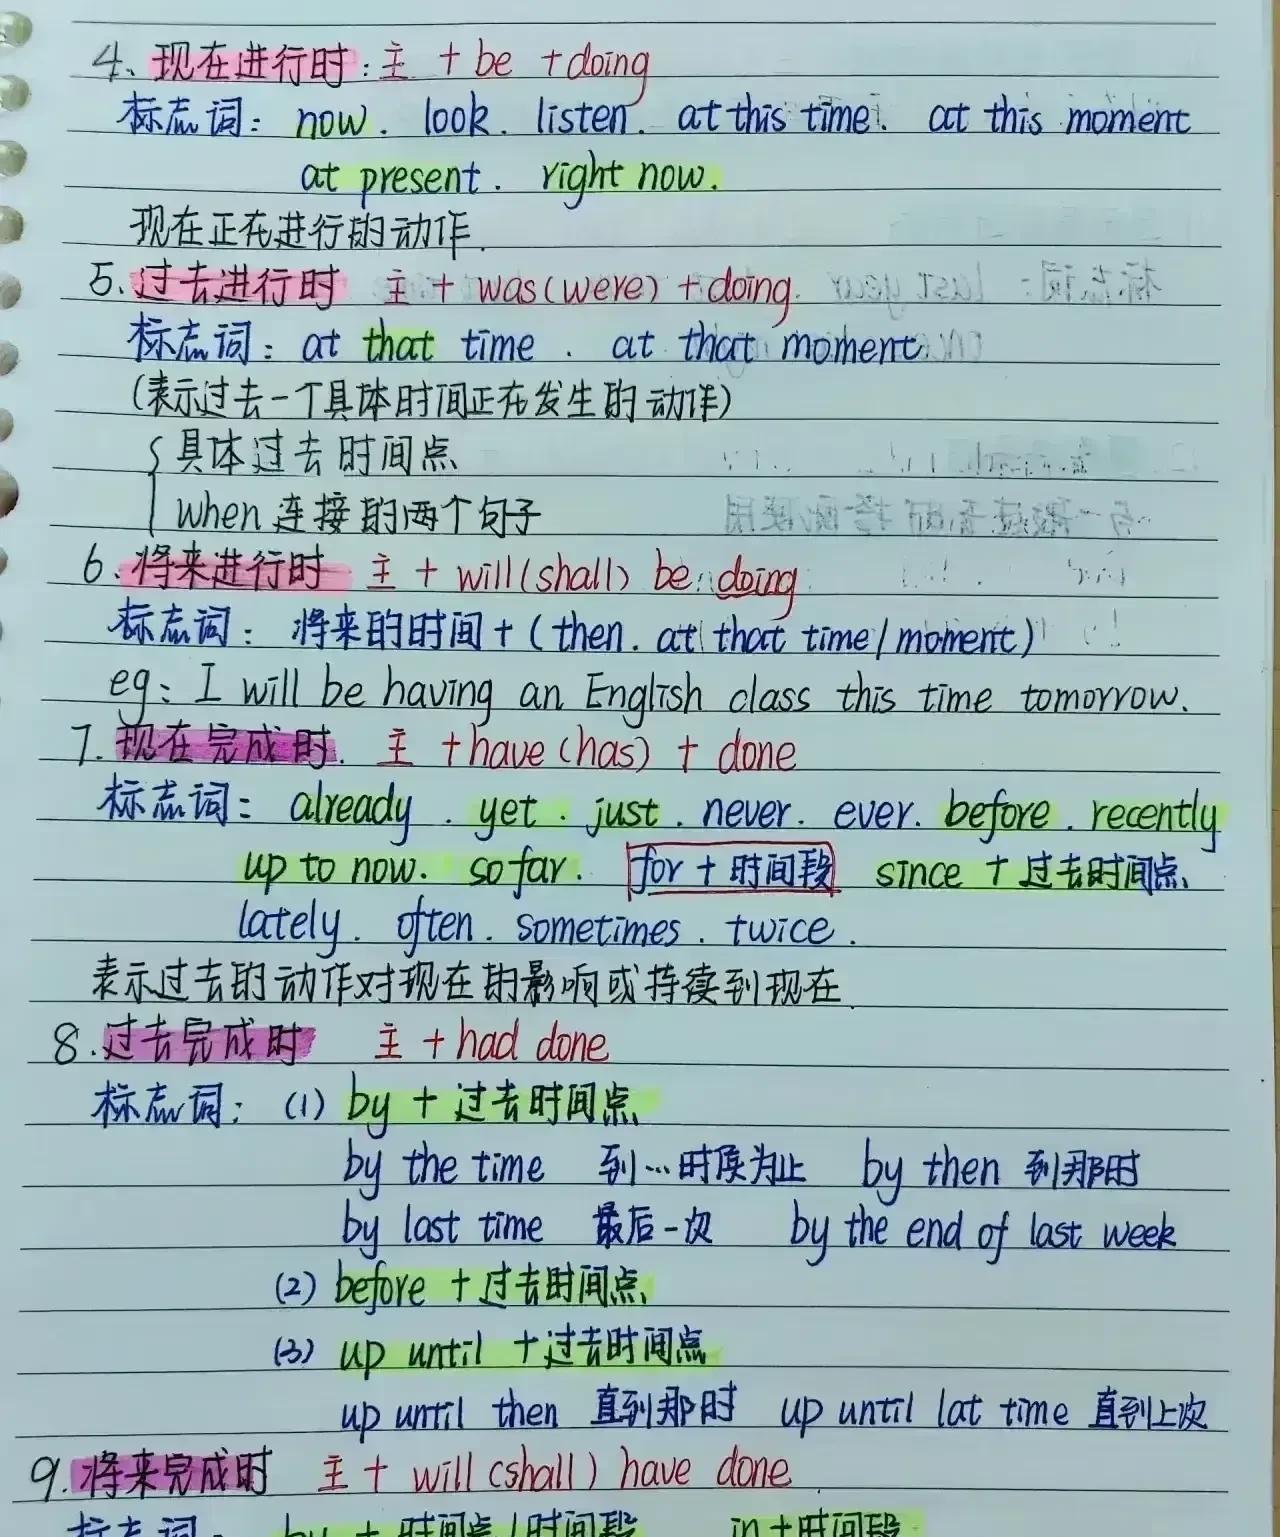 4、现在进行时：主 + be + doing
标志词：now. look. listen. at this time. at this moment
at present. right now.
现在正在进行的动作.
5.过去进行时 主 + was(were) + doing.
标志词：at that time . at that moment
(表示过去一个具体时间正在发生的动作)
{具体过去时间点
when 连接的两个句子
6.将来进行时 主 + will(shall) be doing
标志词：将来的时间+(then. at that time/moment)
eg: I will be having an English class this time tomorrow.
7.现在完成时. 主 +have(has) + done
标志词：already . yet . just . never. ever. before . recently
up to now. so far. for + 时间段 since + 过去时间点、
lately. often. sometimes. twice.
表示过去的动作对现在的影响或持续到现在.
8.过去完成时 主 + had done
标志词：(1) by + 过去时间点、
by the time 到…时侯为止 by then 到那时
by last time 最后一次 by the end of last week
(2) before + 过去时间点、
(3) up until +过去时间点
up until then 直到那时 up until lat time 直到上次
9.将来完成时 主+ will (shall) have done
标志词：by + 时间点/时间段 in+时间段